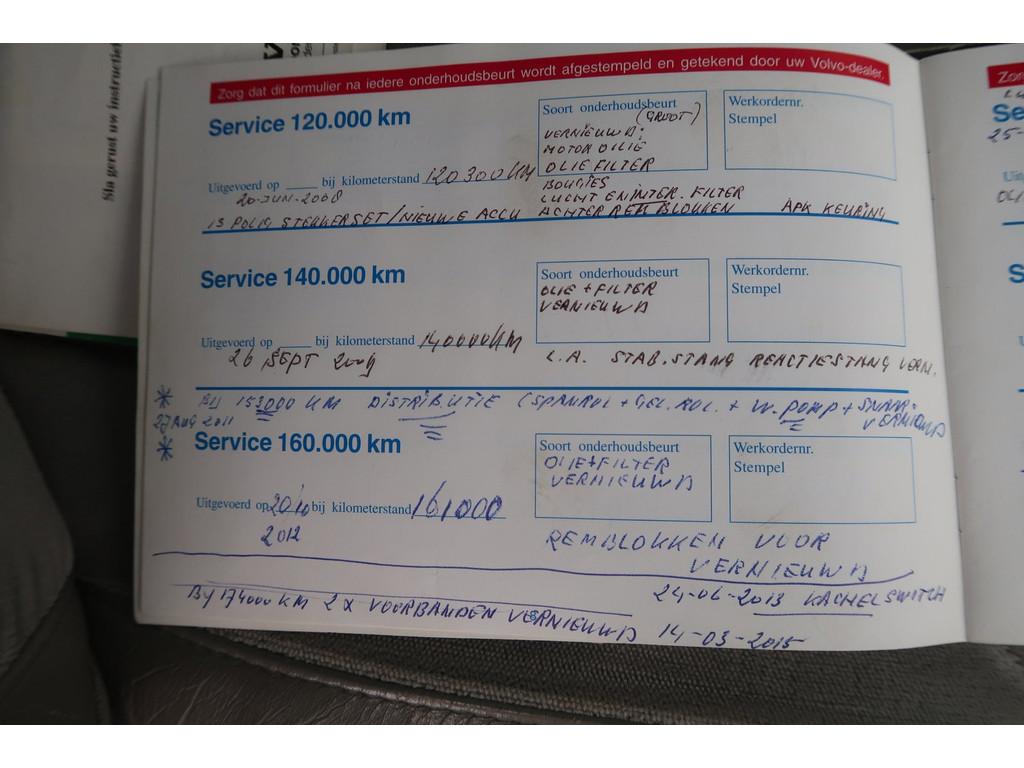 Sla gerust uw instructie
Zorg dat dit formulier na iedere onderhoudsbeurt wordt afgestempeld en getekend door uw Volvo-dealer.
Service 120.000 km
Soort onderhoudsbeurt
(GROOT)
VERNIEUWD:
MOTOR OLIE
OLIEFILTER
BOUGIES
LUCHT EN INTER. FILTER
ACHTER REMBLOKKEN APK KEURING
Werkordernr.
Stempel
Uitgevoerd op ____ bij kilometerstand 120300KM
20-JUN-2008
13 POLIG STEKKERSET/NIEUWE ACCU
Service 140.000 km
Soort onderhoudsbeurt
OLIE + FILTER
VERNIEUWD
Werkordernr.
Stempel
Uitgevoerd op ____ bij kilometerstand 140000KM
26 SEPT 2009
L.A. STAB.STANG REACTIESTANG VERN.
* BIJ 153000 KM DISTRIBUTIE (SPANROL + GEL.ROL. + W.POMP + SNAAR-
VERNIEUWD
27 AUG 2011
* Service 160.000 km
Soort onderhoudsbeurt
OLIE+FILTER
VERNIEUWD
Werkordernr.
Stempel
Uitgevoerd op 20/10 bij kilometerstand 161000
2012
REMBLOKKEN VOOR
VERNIEUWD
24-06-2013 KACHELSWITCH
BIJ 174000KM 2X VOORBANDEN VERNIEUWD 14-03-2015
Zor
Se
25-